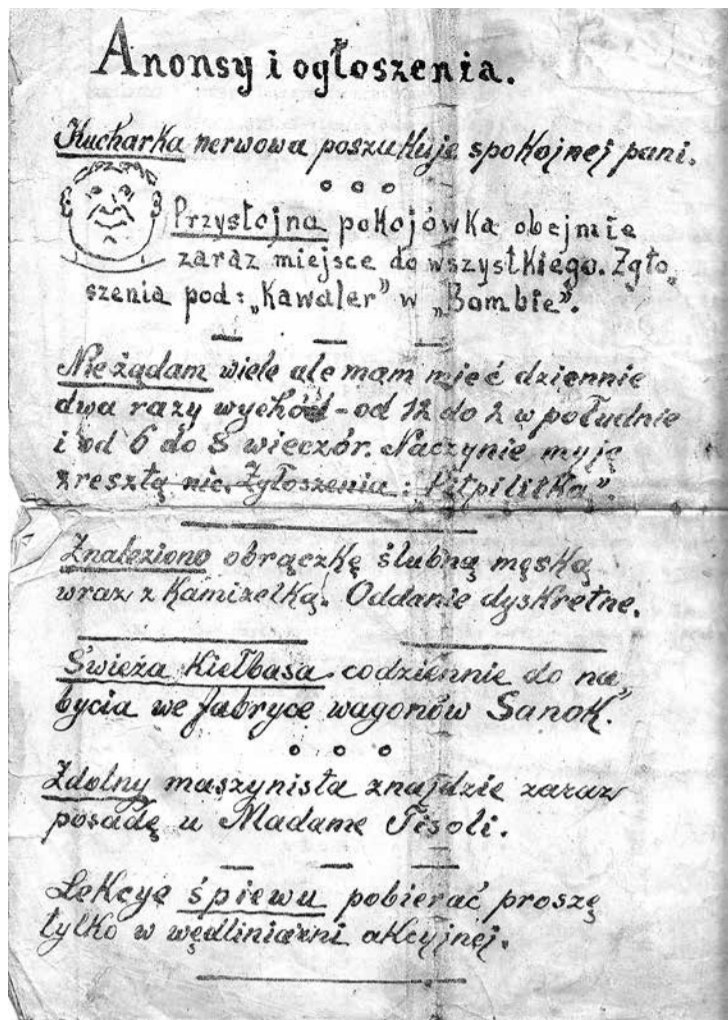 Anonsy i ogłoszenia.
Kucharka nerwowa poszukuje spokojnej pani.
Przystojna pokojówka obejmie
zaraz miejsce do wszystkiego. Zgło„
szenia pod: „Kawaler" w „Bombie".
Nie żądam wiele ale mam mieć dziennie
dwa razy wychód - od 12 do 2 w południe
i od 6 do 8 wieczór. Naczynie myję
zresztą nic. Zgłoszenia: Pitpilitka".
Znaleziono obrączkę ślubną męską
wraz z kamizelką. Oddanie dyskretne.
Świeża Kiełbasa codziennie do na„
bycia we fabryce wagonów Sanok.
Zdolny maszynista znajdzie zaraz
posadę u Madame Tisoli.
Lekcye śpiewu pobierać proszę
tylko w wędliniarni akcyjnej.